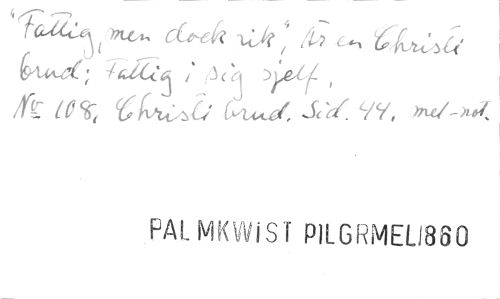 "Fattig, men dock rik", Är en Christi
brud; Fattig i sig sjelf.
No 108, Christi brud. Sid. 44. mel-not.
PALMKWiST PILGRMEL1860